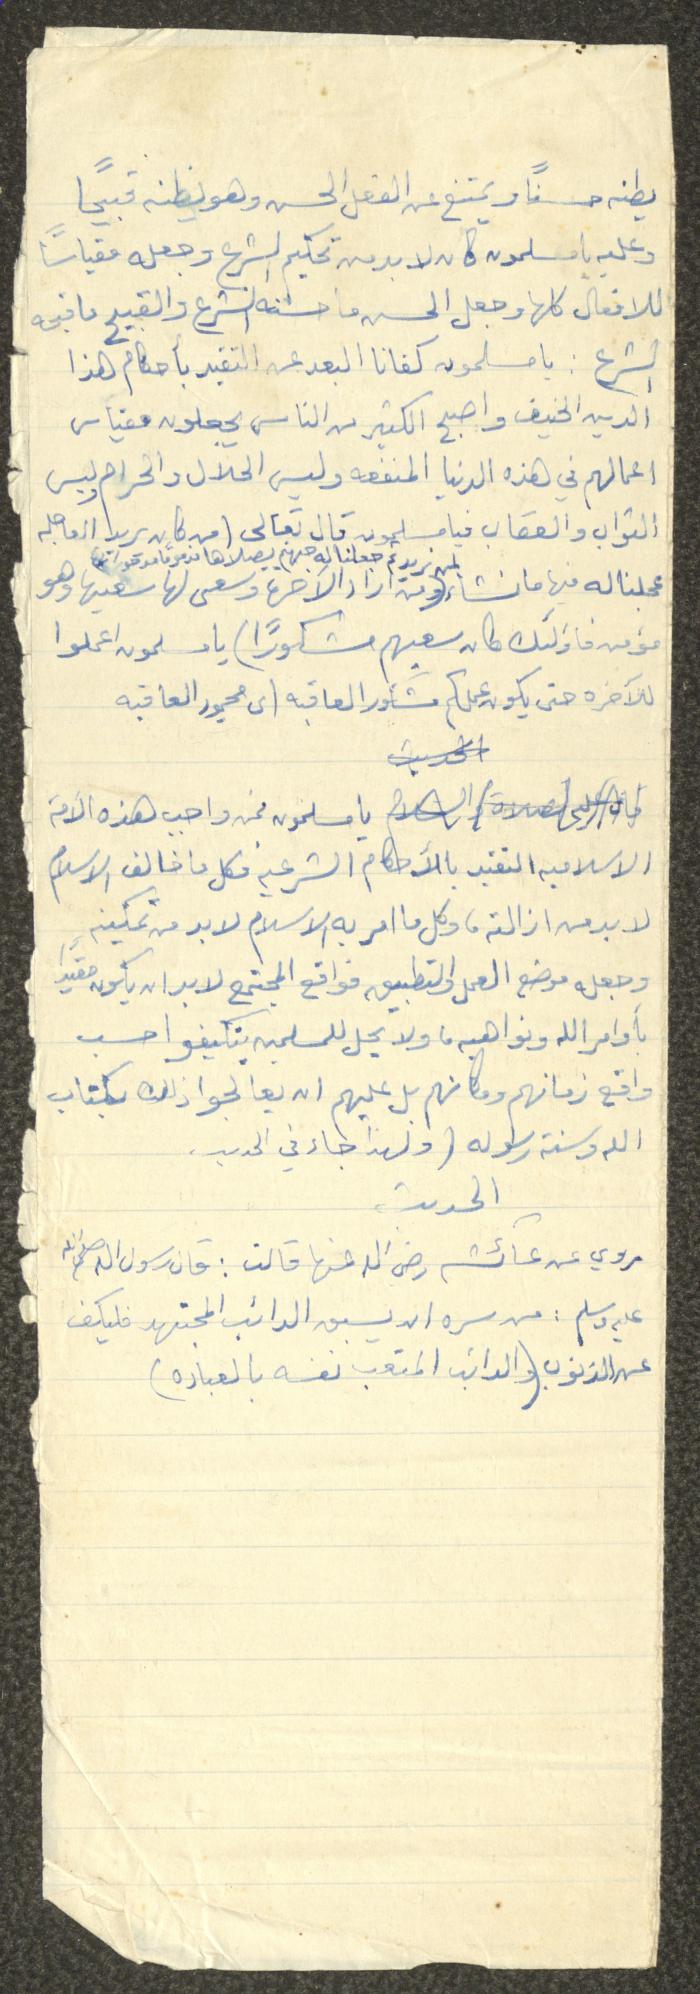 يظنه حسنًا ويمتنع عن الفعل الحسن وهو يظنه قبيحًا
وعليه يا مسلمون كان لا بد من تحكيم الشرع وجعله مقياسًا
للافعال كلها وجعل الحسن ما حسّنه الشرع والقبيح ما قبحه
الشرع : يا مسلمون كفانا البعد عن التقيد بأحكام هذا
الدين الحنيف واصبح الكثير من الناس يجعلون مقياس
اعمالهم في هذه الدنيا المنفعه وليس الحلال والحرام وليس
الثواب والعقاب فيا مسلمون قال تعالى (من كان يريد العاجله
لمن نريد ثم جعلنا له جهنم يصلاها مذمومًا مدحورًا
عجلنا له فيها ما نشاء ومن اراد الآخرة وسعى لها سعيها وهو
مؤمن فاؤلئك كان سعيهم مشكورًا) يا مسلمون اعملوا
للآخره حتى يكون عملكم مشكور العاقبه اي محمود العاقبه
الحديث
يا مسلمون فمن واجب هذه الأمة
الاسلاميه التقيد بالأحكام الشرعيه فكل ما خالف الاسلام
لا بد من ازالته، وكل ما امر به الاسلام لا بد من تمكينه
وجعله موضع العمل والتطبيق فواقع المجتمع لا بد ان يكون مقيدًا
بأوامر الله ونواهيه، ولا يحل للمسلمين يتكيفوا حسب
واقع زمانهم ومكانهم بل عليهم ان يعالجوا ذلك بكتاب
الله وسنة رسوله (ولهذا جاء في الحديث.
الحديث
روي عن عائشه رضي الله عنها قالت : قال رسول الله صلى الله
عليه وسلم : من سره ان يسبق الدائب المجتهد فليكف
عن الذنوب (والدائب المتعب نفسه بالعباده)